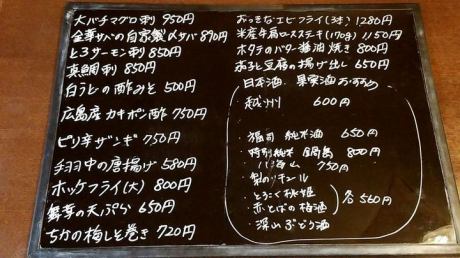 大バチマグロ刺 950円
金華サバの自家製〆サバ 890円
とろサーモン刺 850円
真鯛刺 850円
白うどの酢みそ 500円
広島産カキポン酢 750円
ピリ辛ザンギ 750円
手羽中の唐揚げ 580円
ホッケフライ(大) 800円
舞茸の天ぷら 650円
ちかの梅しそ巻き 720円
おっきなエビフライ(3本) 1280円
米産牛肩ロースステーキ(170g) 1150円
ホタテのバター醤油焼き 800円
茄子と豆腐の揚げ出し 650円
日本酒、果実酒おすすめ
越州 600円
福司 純米酒 650円
特別純米 鍋島 800円
山 750円
梨のリキュール
とろこく桃姫
赤とばの梅酒
深山ぶどう酒
各560円